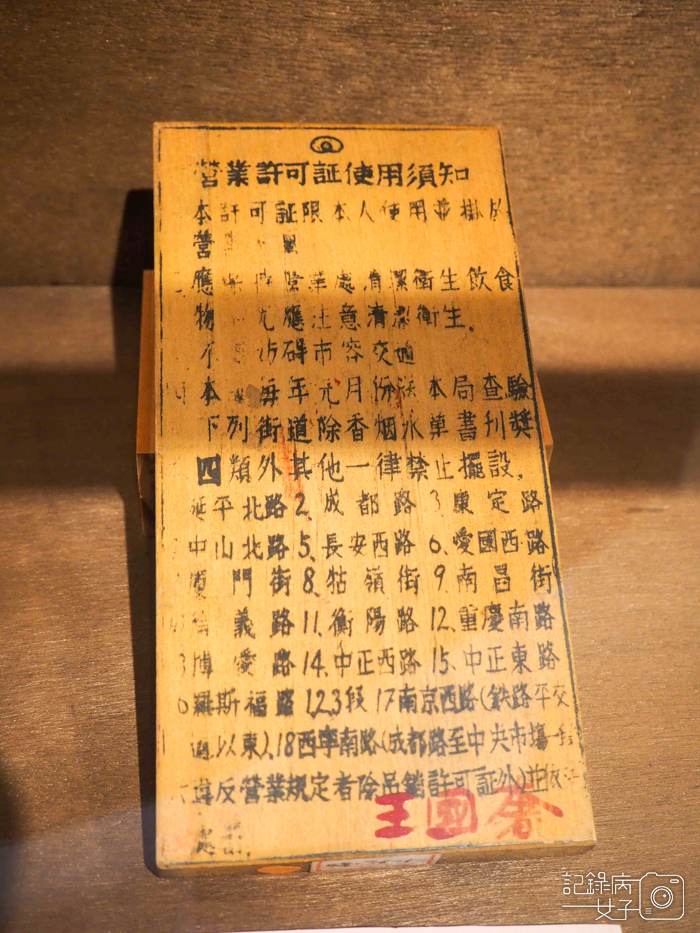 營業許可証使用須知
本許可証限本人使用並掛於
營
應 營業處清潔衛生飲食
物 尤應注意清潔衛生.
不 妨碍市容交通
本 每年元月份送本局查驗
下列街道除香烟水菓書刊獎
四類外其他一律禁止擺設.
延平北路2.成都路3.康定路
中山北路5.長安西路6.愛國西路
廈門街8.牯嶺街9.南昌街
信義路11.衡陽路12.重慶南路
3博愛路14.中正西路15.中正東路
羅斯福路1,2,3段17南京西路(鉄路平交
道以東).18西寧南路(成都路至中央市場
違反營業規定者除吊銷許可証外)並依
處
王國
記錄病
女子